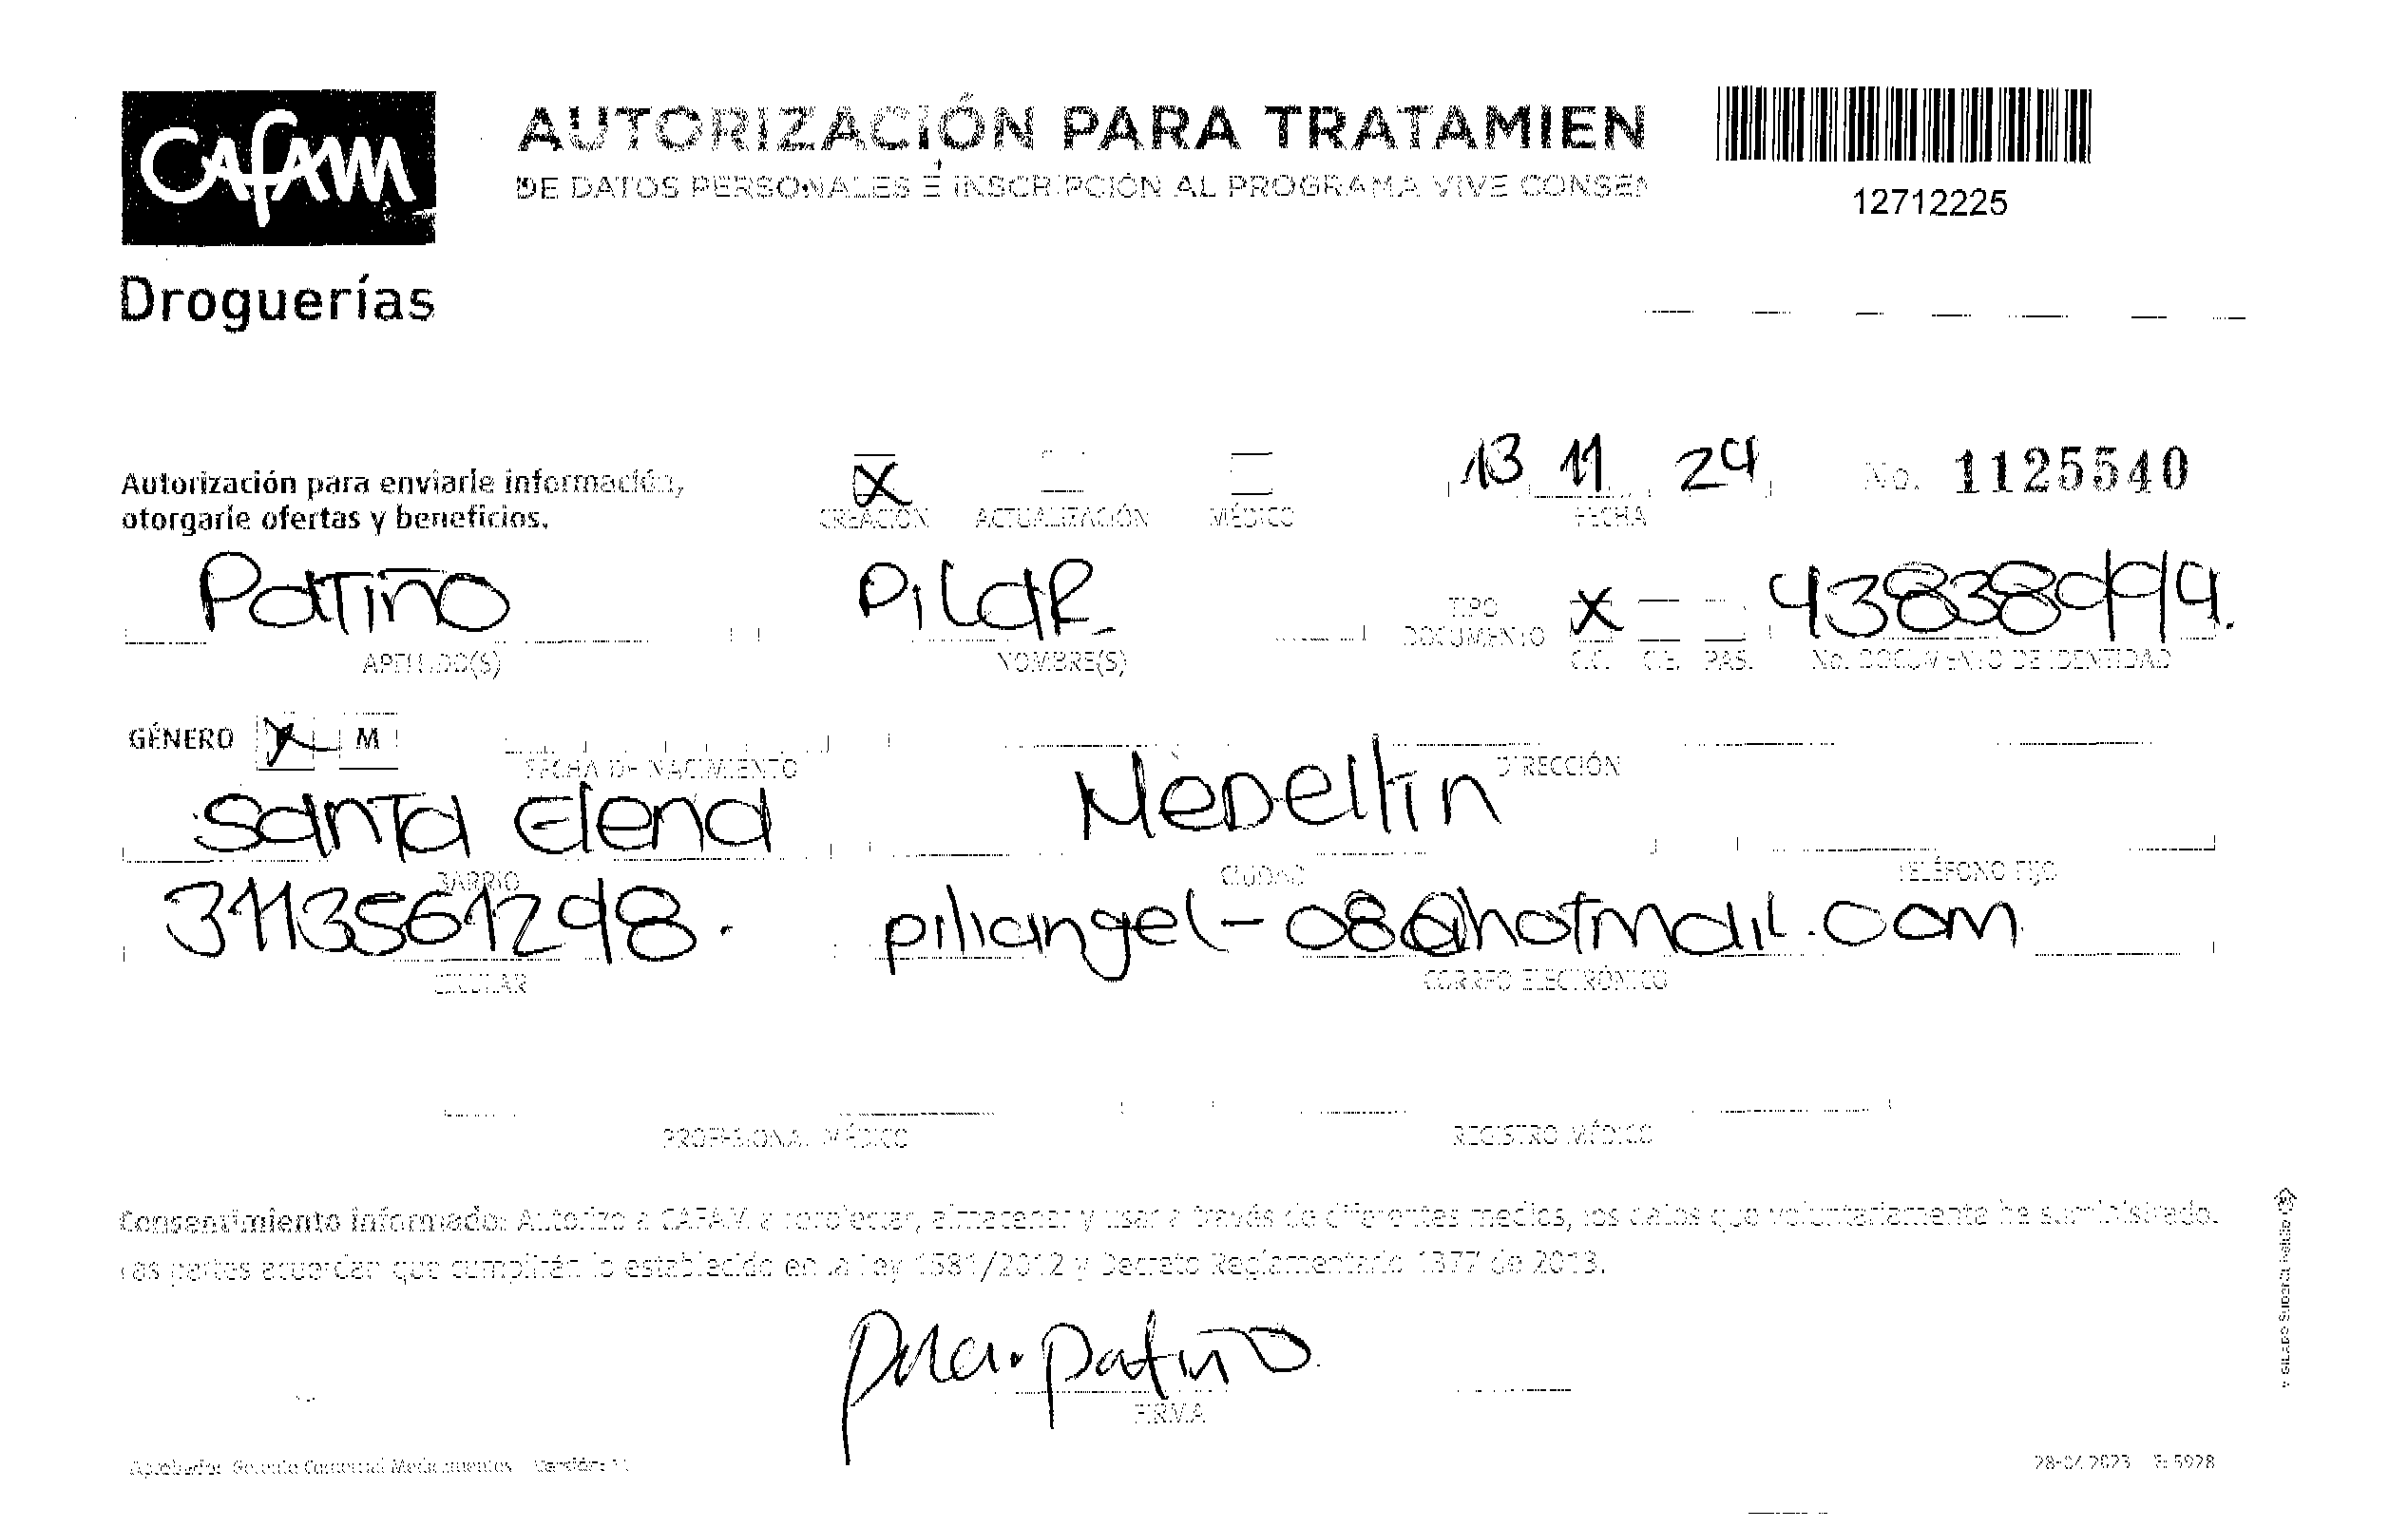 CAFAM
Droguerías
AUTORIZACIÓN PARA TRATAMIEN
DE DATOS PERSONALES E INSCRIPCIÓN AL PROGRAMA VIVE CONSEN
12712225
Autorización para enviarle información,
otorgarle ofertas y beneficios.
X CREACIÓN ACTUALIZACIÓN MÉDICO
13 11 24
FECHA
No. 1125540
Patiño PilaR
APELLIDO(S) NOMBRE(S)
TIPO DOCUMENTO X C.C. C.E. PAS.
43838994.
No. DOCUMENTO DE IDENTIDAD
GÉNERO X M
FECHA DE NACIMIENTO DIRECCIÓN
Santa Elena Medellin
BARRIO CIUDAD TELÉFONO FIJO
3113561298. piliangel-08@hotmail.com
CELULAR CORREO ELECTRÓNICO
PROFESIONAL MÉDICO REGISTRO MÉDICO
Consentimiento informado: Autorizo a CAFAM a recolectar, almacenar y usar a través de diferentes medios, los datos que voluntariamente he suministrado.
Las partes acuerdan que cumplirán lo establecido en la Ley 1581/2012 y Decreto Reglamentario 1377 de 2013.
patiño
FIRMA
Aprobador Gerente Comercial Medicamentos Versión: